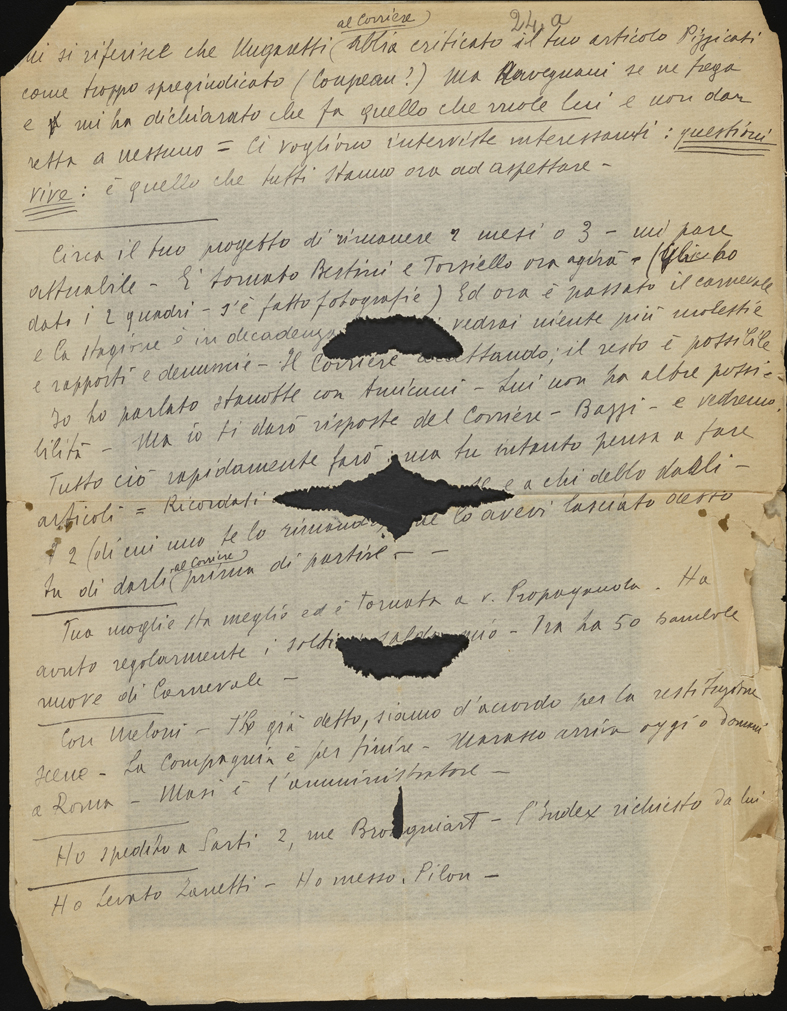 24. a
al Corriere
mi si riferisce che Ungaretti abbia criticato il tuo articolo Pizzicati
come troppo spregiudicato (Coupeau?) Ma Ravegnani se ne frega
e mi ha dichiarato che fa quello che vuole lui e non dar
retta a nessuno = Ci vogliono interviste interessanti: questioni
vive: è quello che tutti stanno ora ad aspettare -
Circa il tuo progetto di rimanere 2 mesi o 3 - mi pare
attuabile - E' tornato Bestini e Torsiello ora agirà - (gli ho
dati i 2 quadri - s'è fatto fotografie) Ed ora è passato il carnevale
e la stagione è in decadenza vedrai niente più molestie
e rapporti e denuncie - Il Corriere accettando; il resto è possibile
Io ho parlato stanotte con Amicucci - Lui non ha altre possi-
bilità - Ma io ti darò risposte del Corriere - Bazzi - e vedremo.
Tutto ciò rapidamente farò, ma tu intanto pensa a fare
articoli = Ricordati e a chi dello darli -
i 2 (di cui uno te lo lo avevi lasciato detto
tu di darli al Corriere prima di partire - -
Tua moglie sta meglio ed è tornata a v. Propaganda. Ha
avuto regolarmente i soldi - Ora ha 50 bambole
nuove di Carnevale -
Con Meloni - T'ho già detto, siamo d'accordo per la restituzione
scene - La Compagnia è per finire - Marasco arriva oggi o domani
a Roma - Masi è l'amministratore -
Ho spedito a Sarti 2, me Brongniart - l'Index richiesto da lui
Ho levato Zanetti - Ho messo. Pilon -